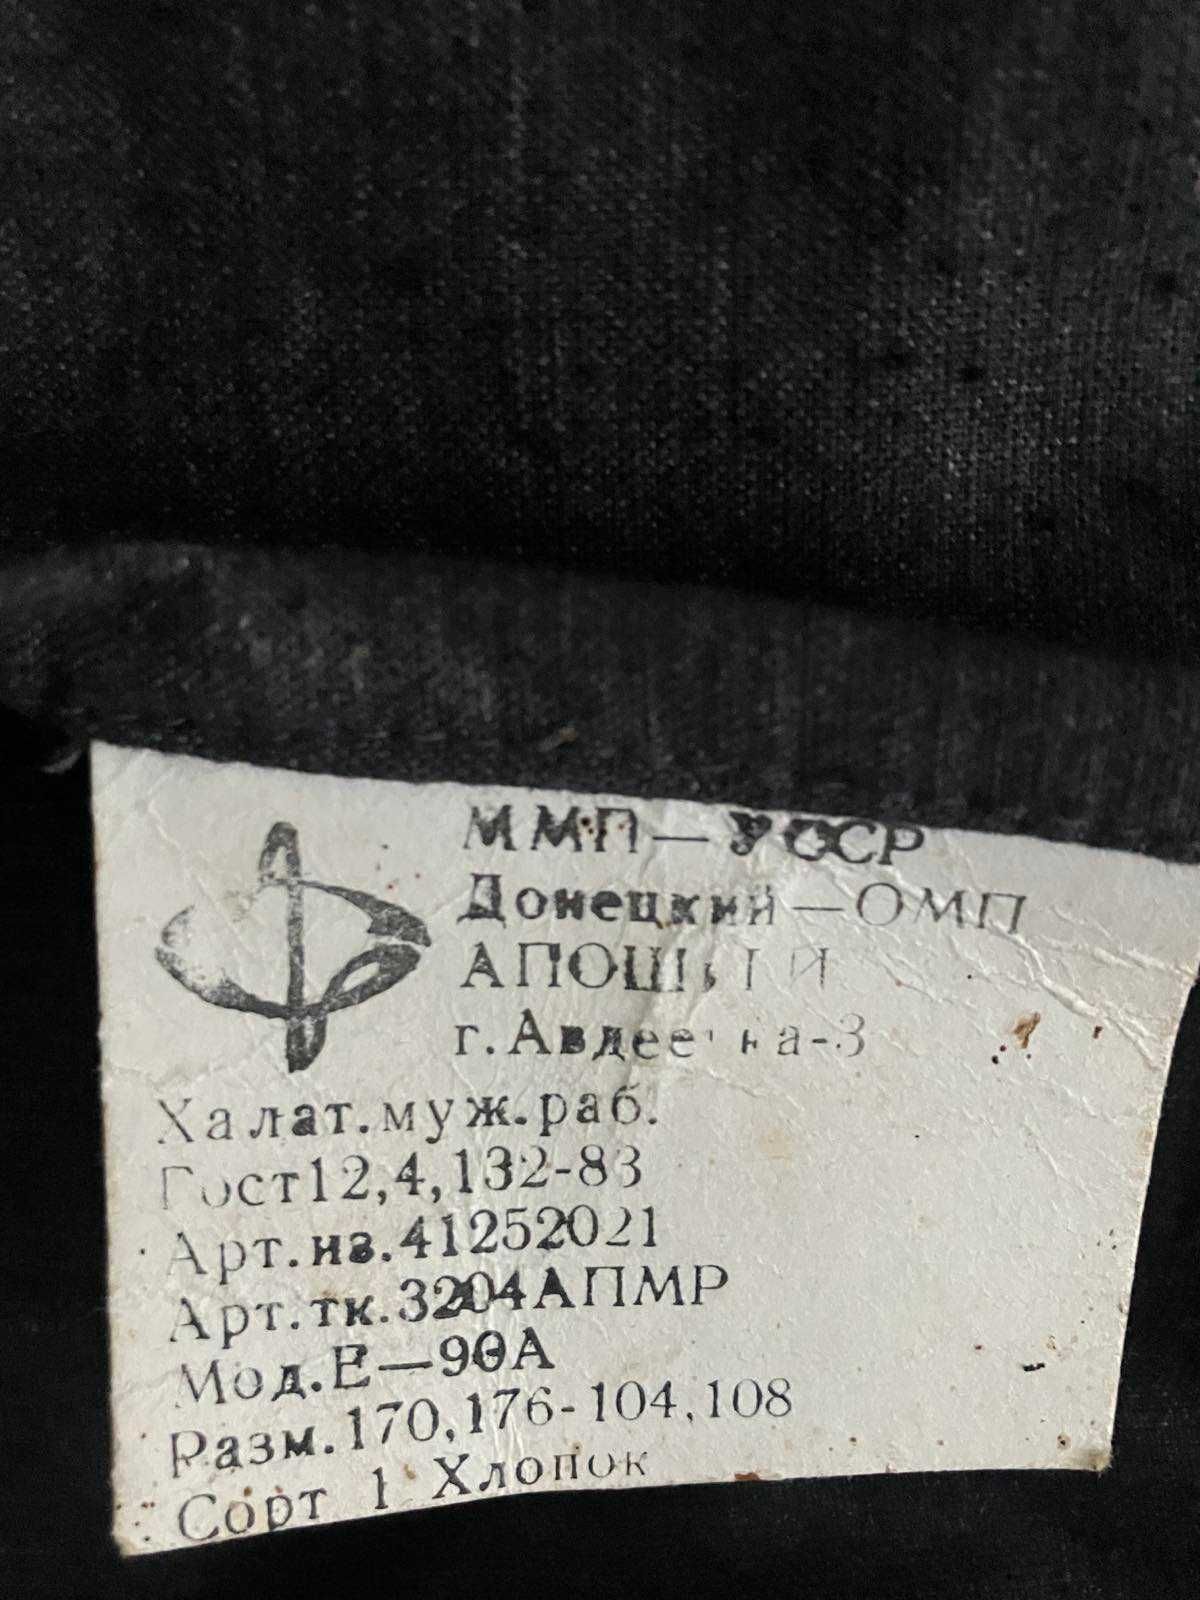 ММП—УССР
Донецкий—ОМП
г. Авдеевка-3
Халат.муж.раб.
Гост12,4,132-83
Арт.из.41252021
Арт.тк.3204АПМР
Мод.Е—90А
Разм.170,176-104,108
Сорт 1 Хлопок